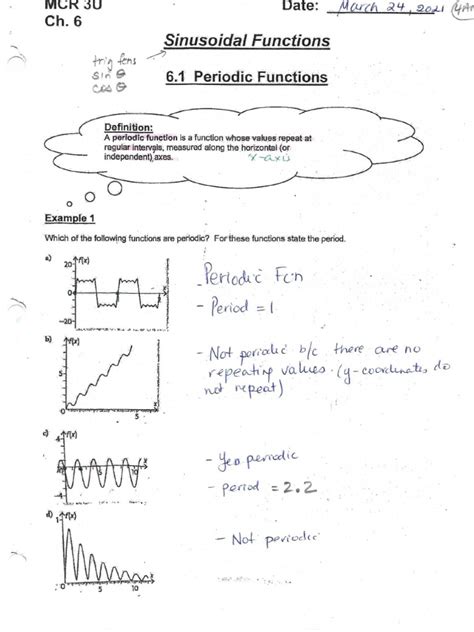 MCR 3U
Date: March 24, 2021
Ch. 6
Sinusoidal Functions
trig fcns
sin θ
cos θ
6.1 Periodic Functions
Definition:
A periodic function is a function whose values repeat at
regular intervals, measured along the horizontal (or
independent) axes. x-axis
Example 1
Which of the following functions are periodic? For these functions state the period.
a)
f(x)
20
0
-20
x
- Periodic Fcn
- Period = 1
b)
f(x)
5
5
- Not periodic b/c there are no
repeating values. (y-coordinates do
not repeat)
c)
f(x)
4
-4
x
- Yes periodic
- period = 2.2
d)
f(x)
1
5
10
x
- Not periodic